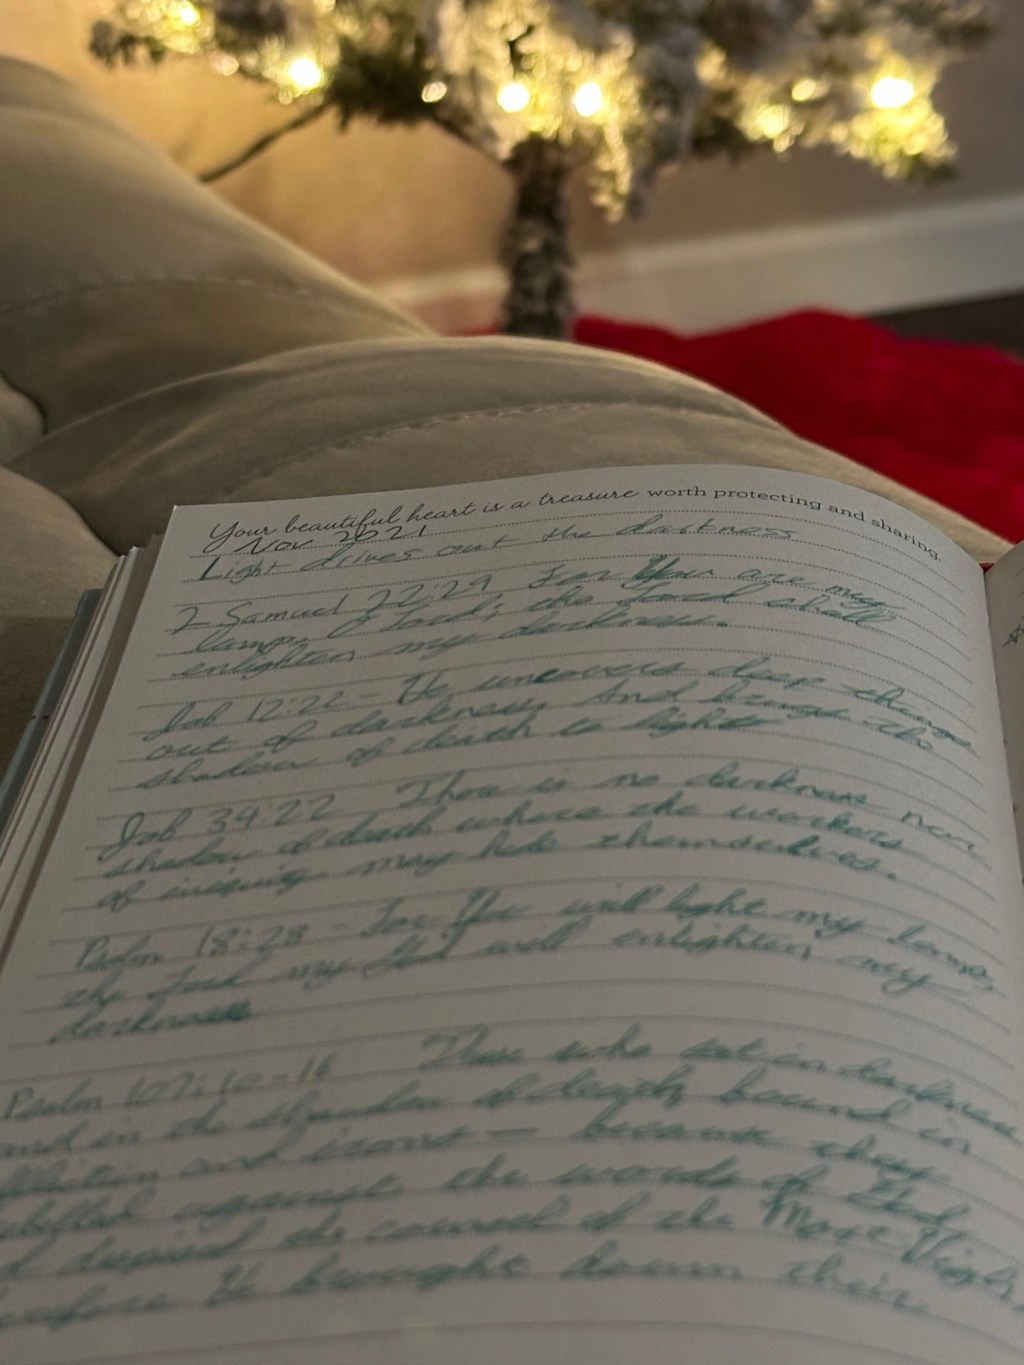 Your beautiful heart is a treasure worth protecting and sharing.
Nov 2021
Light drives out the darkness
2 Samuel 22:29 For You are my
lamp, O Lord; the Lord shall
enlighten my darkness.
Job 12:22 - He uncovers deep things
out of darkness, And brings the
shadow of death to light
Job 34:22 There is no darkness nor
shadow of death where the workers
of iniquity may hide themselves.
Psalm 18:28 - For You will light my lamp,
the Lord my God will enlighten my
darkness
Psalm 107:10-16 Those who sat in darkness
and in the shadow of death, bound in
and irons — because they
against the words of God
despised the counsel of the Most High,
He brought down their